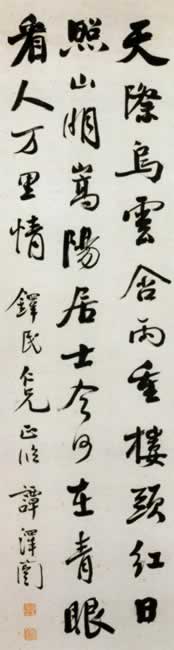 天際烏雲含雨重樓頭紅日
照山明嵩陽居士今何在青眼
看人万里情 鐸民仁兄正临 譚澤闓